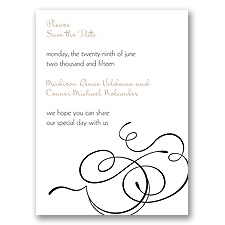 Please
Save the Date
monday, the twenty-ninth of june
two thousand and fifteen
Madison Grace Veldman and
Connor Michael Nolander
we hope you can share
our special day with us